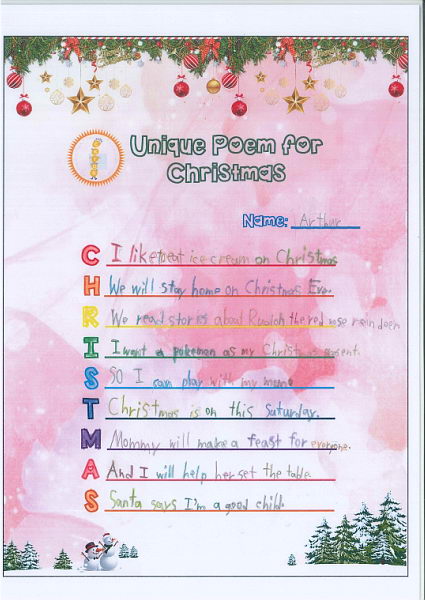 Unique Poem for
Christmas
Name: Arthur
C I like to eat ice cream on Christmas
H We will stay home on Christmas Eve.
R We read stories about Rudolh the red nose reindeer
I I want a pokemon as my Christmas present.
S SO I can play with my mom
T Christmas is on this Saturday.
M Mommy will make a feast for everyone.
A And I will help her set the table.
S Santa says I'm a good child.